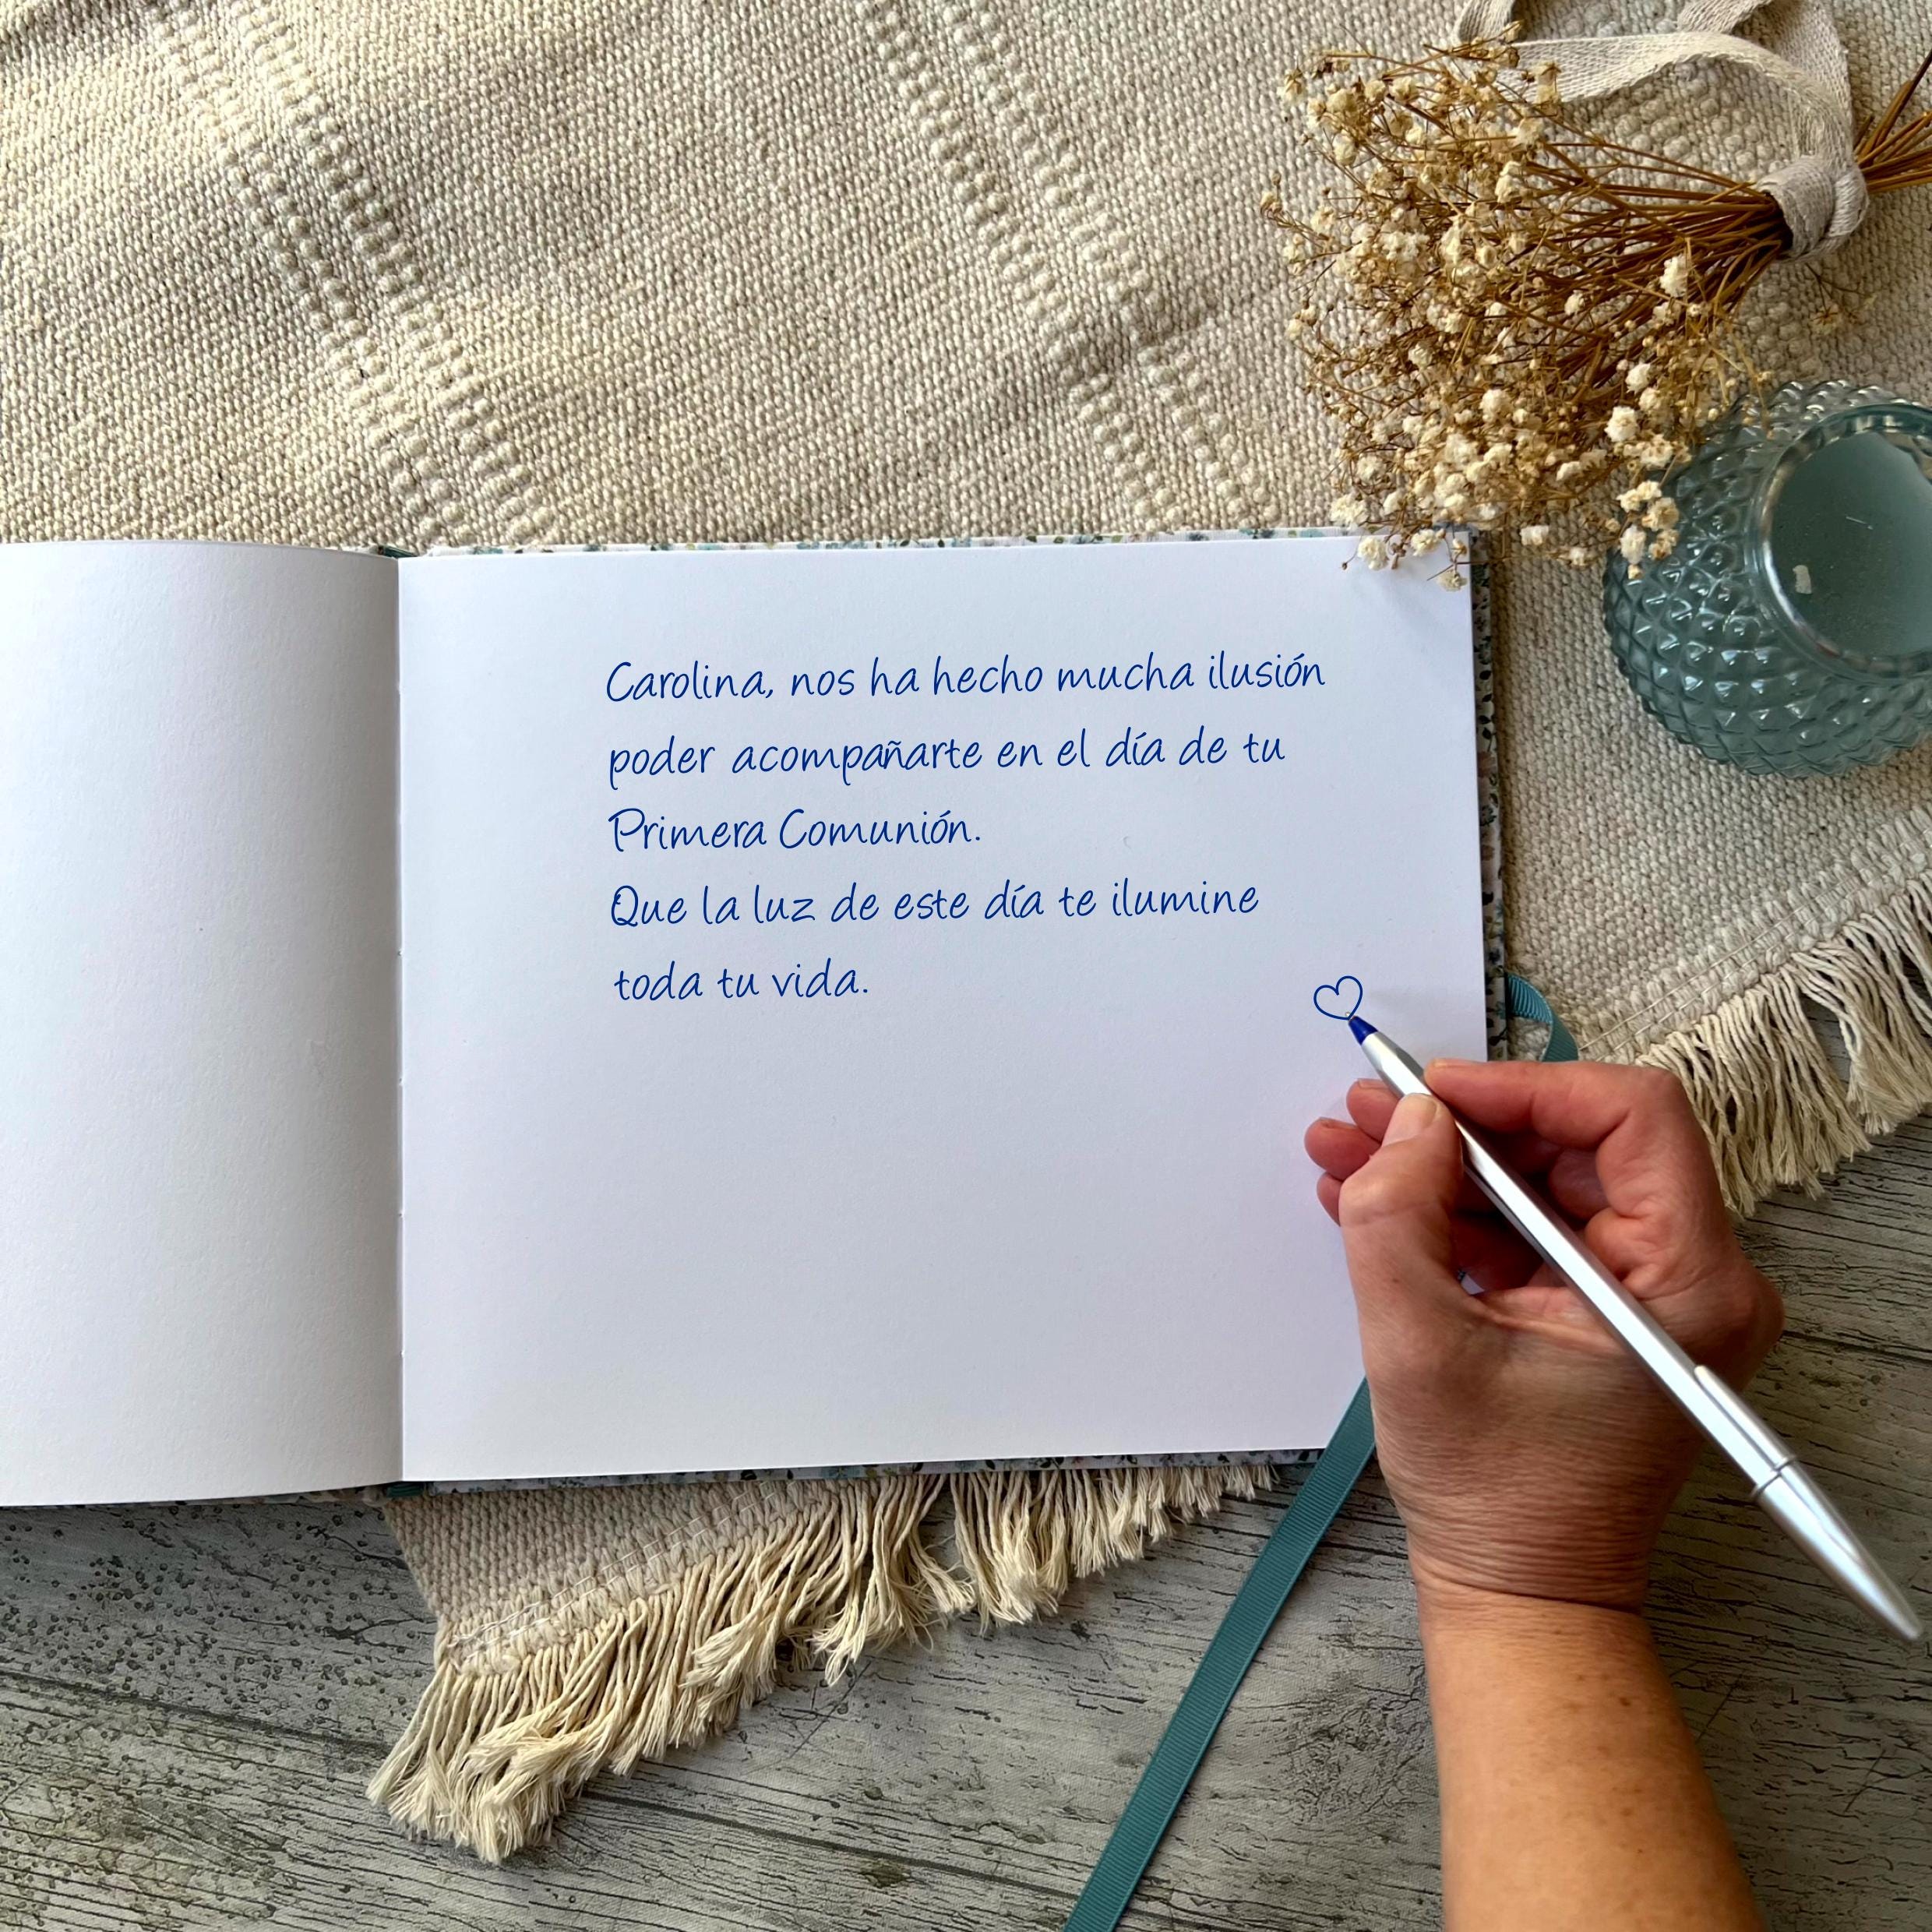 Carolina, nos ha hecho mucha ilusión
poder acompañarte en el día de tu
Primera Comunión.
Que la luz de este día te ilumine
toda tu vida.